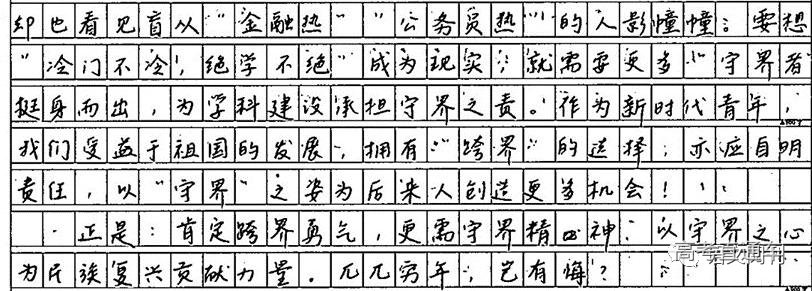 却也看见盲从“金融热”“公务员热”的人影幢幢；要想
“冷门不冷，绝学不绝”成为现实，就需要更多“守界者”
挺身而出，为学科建设承担守界之责。作为新时代青年，
我们受益于祖国的发展，拥有“跨界”的选择，亦应自明
责任，以“守界”之姿为后来人创造更多机会！
正是：肯定跨界勇气，更需守界精神；以守界之心
为民族复兴贡献力量。兀兀穷年，岂有悔？